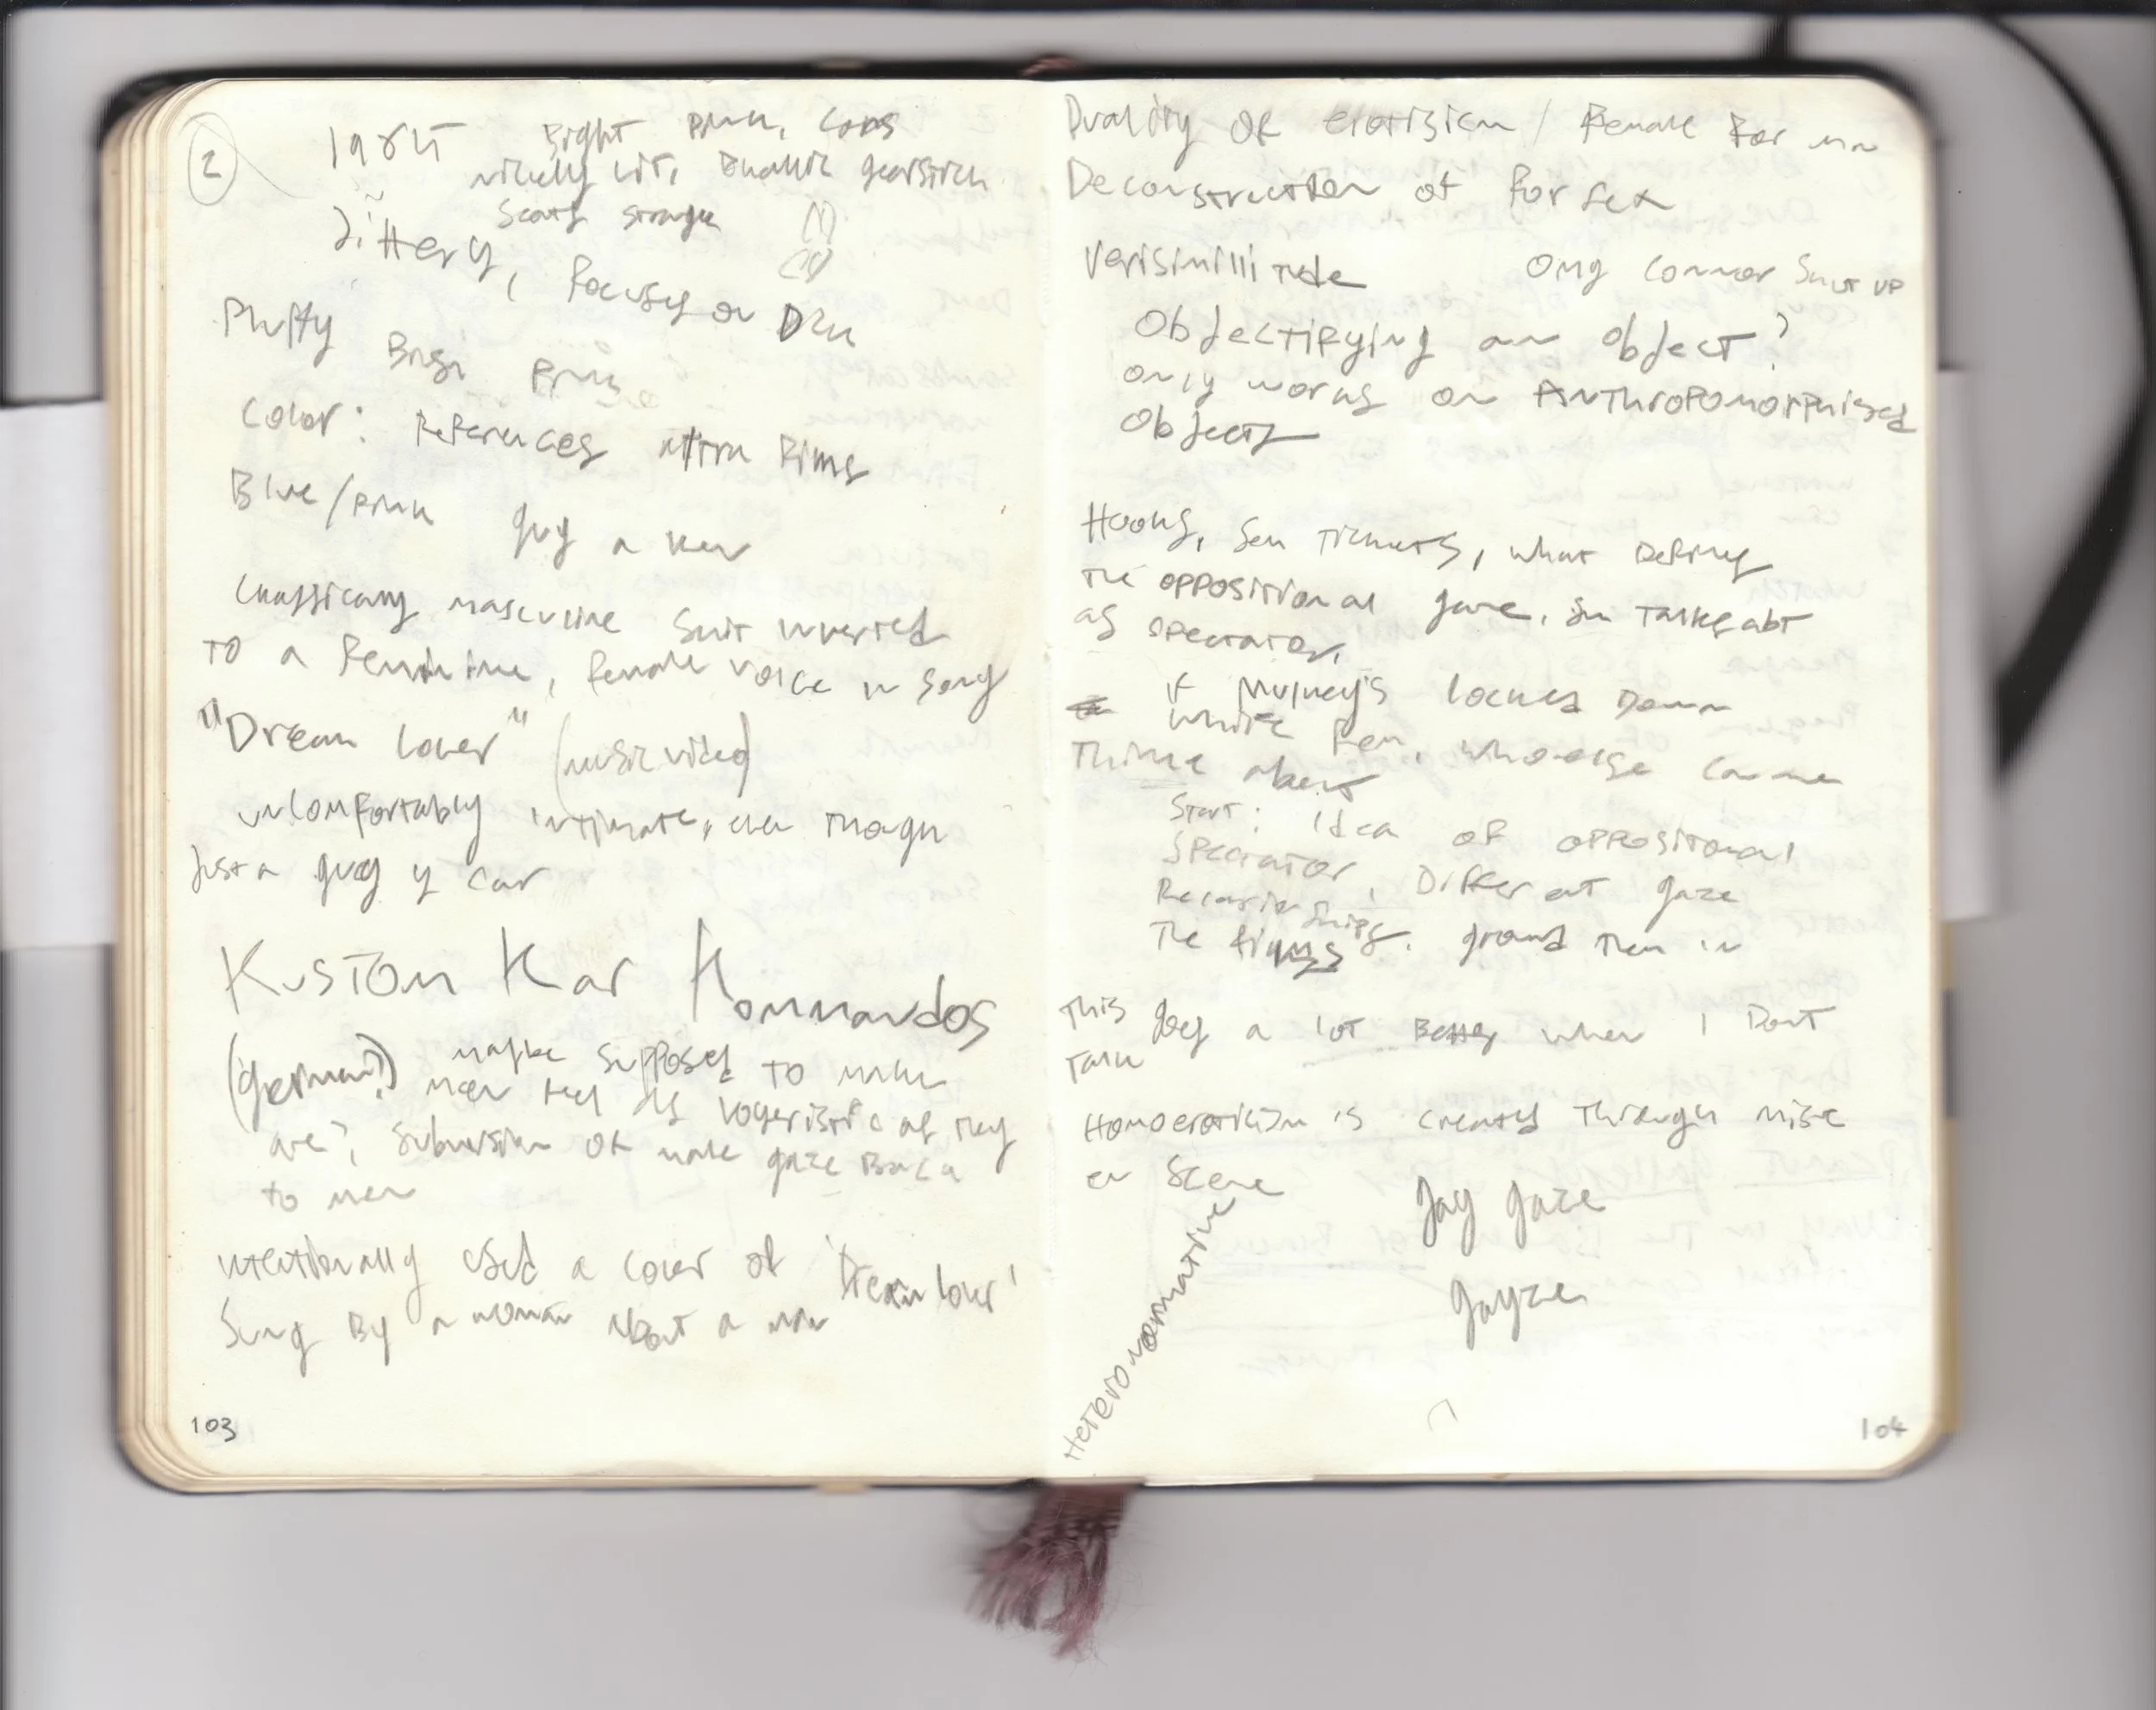 2
Bright pink, cars
nicely lit, phallic gearstick
Seats strange
Jittery, focuses on
Puffy
Color: References other films
Blue/pink guy a
Classically masculine suit inverted
to a feminine, female voice in song
"Dream Lover" (music video)
uncomfortably intimate, even though
Just a guy & car
Kustom Kar Kommandos
(German?) maybe supposed to make
men feel as voyeristic as they
are?, Subversion of male gaze Back
to men
intentionally used a cover of 'Dream lover'
Sung By a woman about a man
103
Duality of erotisism / Female For
Deconstruction of for sex
Verisimilitude omg Connor Shut up
Objectifying an object?
only works on Anthropomorphised
Objects
Hooks, what defines
the oppositional gaze, talks abt
as spectator,
if Mulvey's locked Down
white Fem, who else can we
Think about
Start: Idea of oppositional
Spectator, Different gaze
Relationships
The films. ground them in
This goes a lot Better when I Dont
Talk
Homoerotisism is created Through mise
en Scene
Heteronormative
Gay gaze
Gayze
104